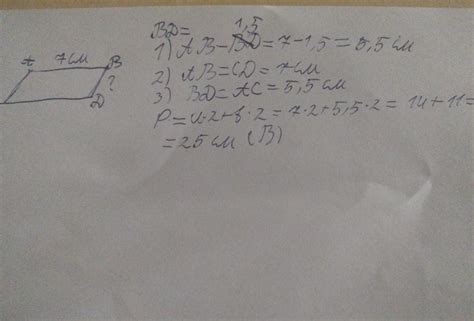 BD=
1) AB-BD 1,5=7-1,5=5,5см
2) AB=CD=7см
3) BD=AC=5,5см
P=a·2+b·2=7·2+5,5·2=14+11=
=25см (В)
A 7см B
?
D